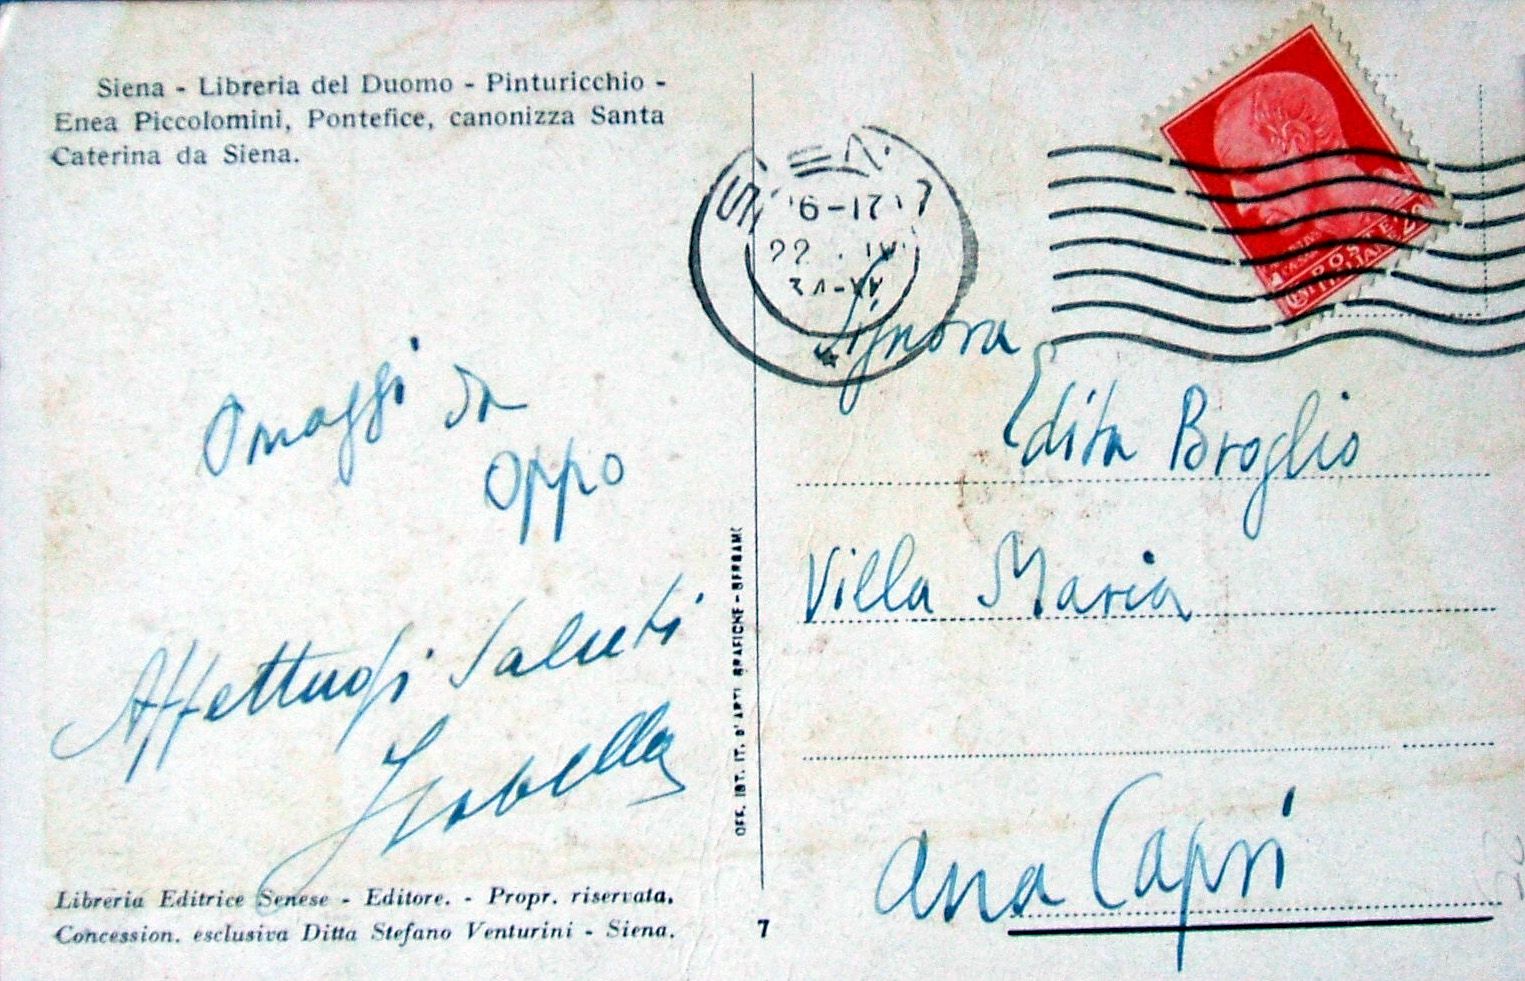 Siena - Libreria del Duomo - Pinturicchio -
Enea Piccolomini, Pontefice, canonizza Santa
Caterina da Siena.
Omaggi da
Oppo
Affettuosi saluti
Isabella
Libreria Editrice Senese - Editore. - Propr. riservata.
Concession. esclusiva Ditta Stefano Venturini - Siena.
OFF. IST. IT. D'ARTI GRAFICHE - BERGAMO
7
SIENA
6-17
22 . IV
POSTE
ITALIANE
Signora
Edita Broglio
Villa Maria
Ana Capri